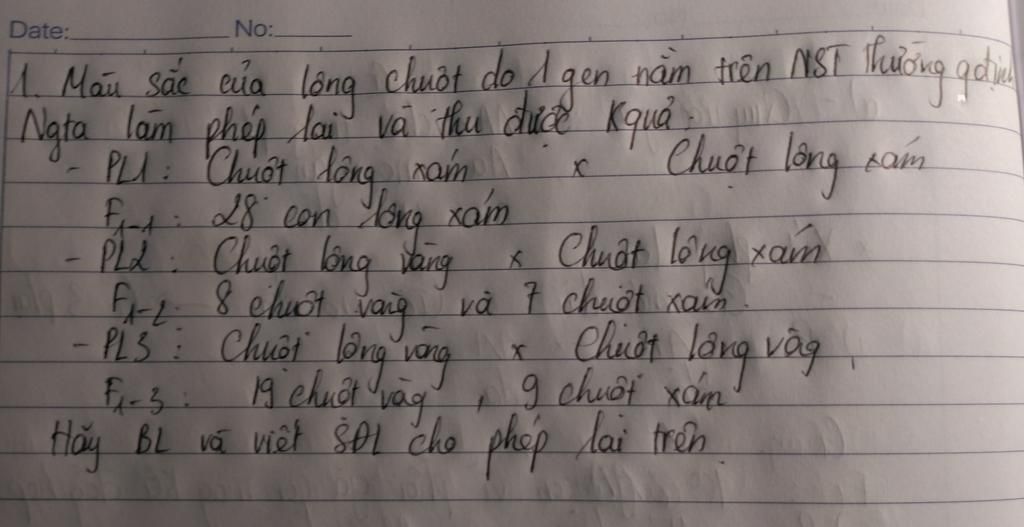 Date: No:
1. Màu sắc của lông chuột do 1 gen nằm trên NST thường qđịnh
Ngta làm phép lai và thu được kquả.
- PL1: Chuột lông xám x Chuột lông xám
F1-1: 28 con lông xám
- PL2: Chuột lông vàng x Chuột lông xám
F1-2: 8 chuột vàng và 7 chuột xám.
- PL3: Chuột lông vàng x Chuột lông vàg,
F1-3: 19 chuột vàg, 9 chuột xám
Hãy BL và viết SĐL cho phép lai trên.